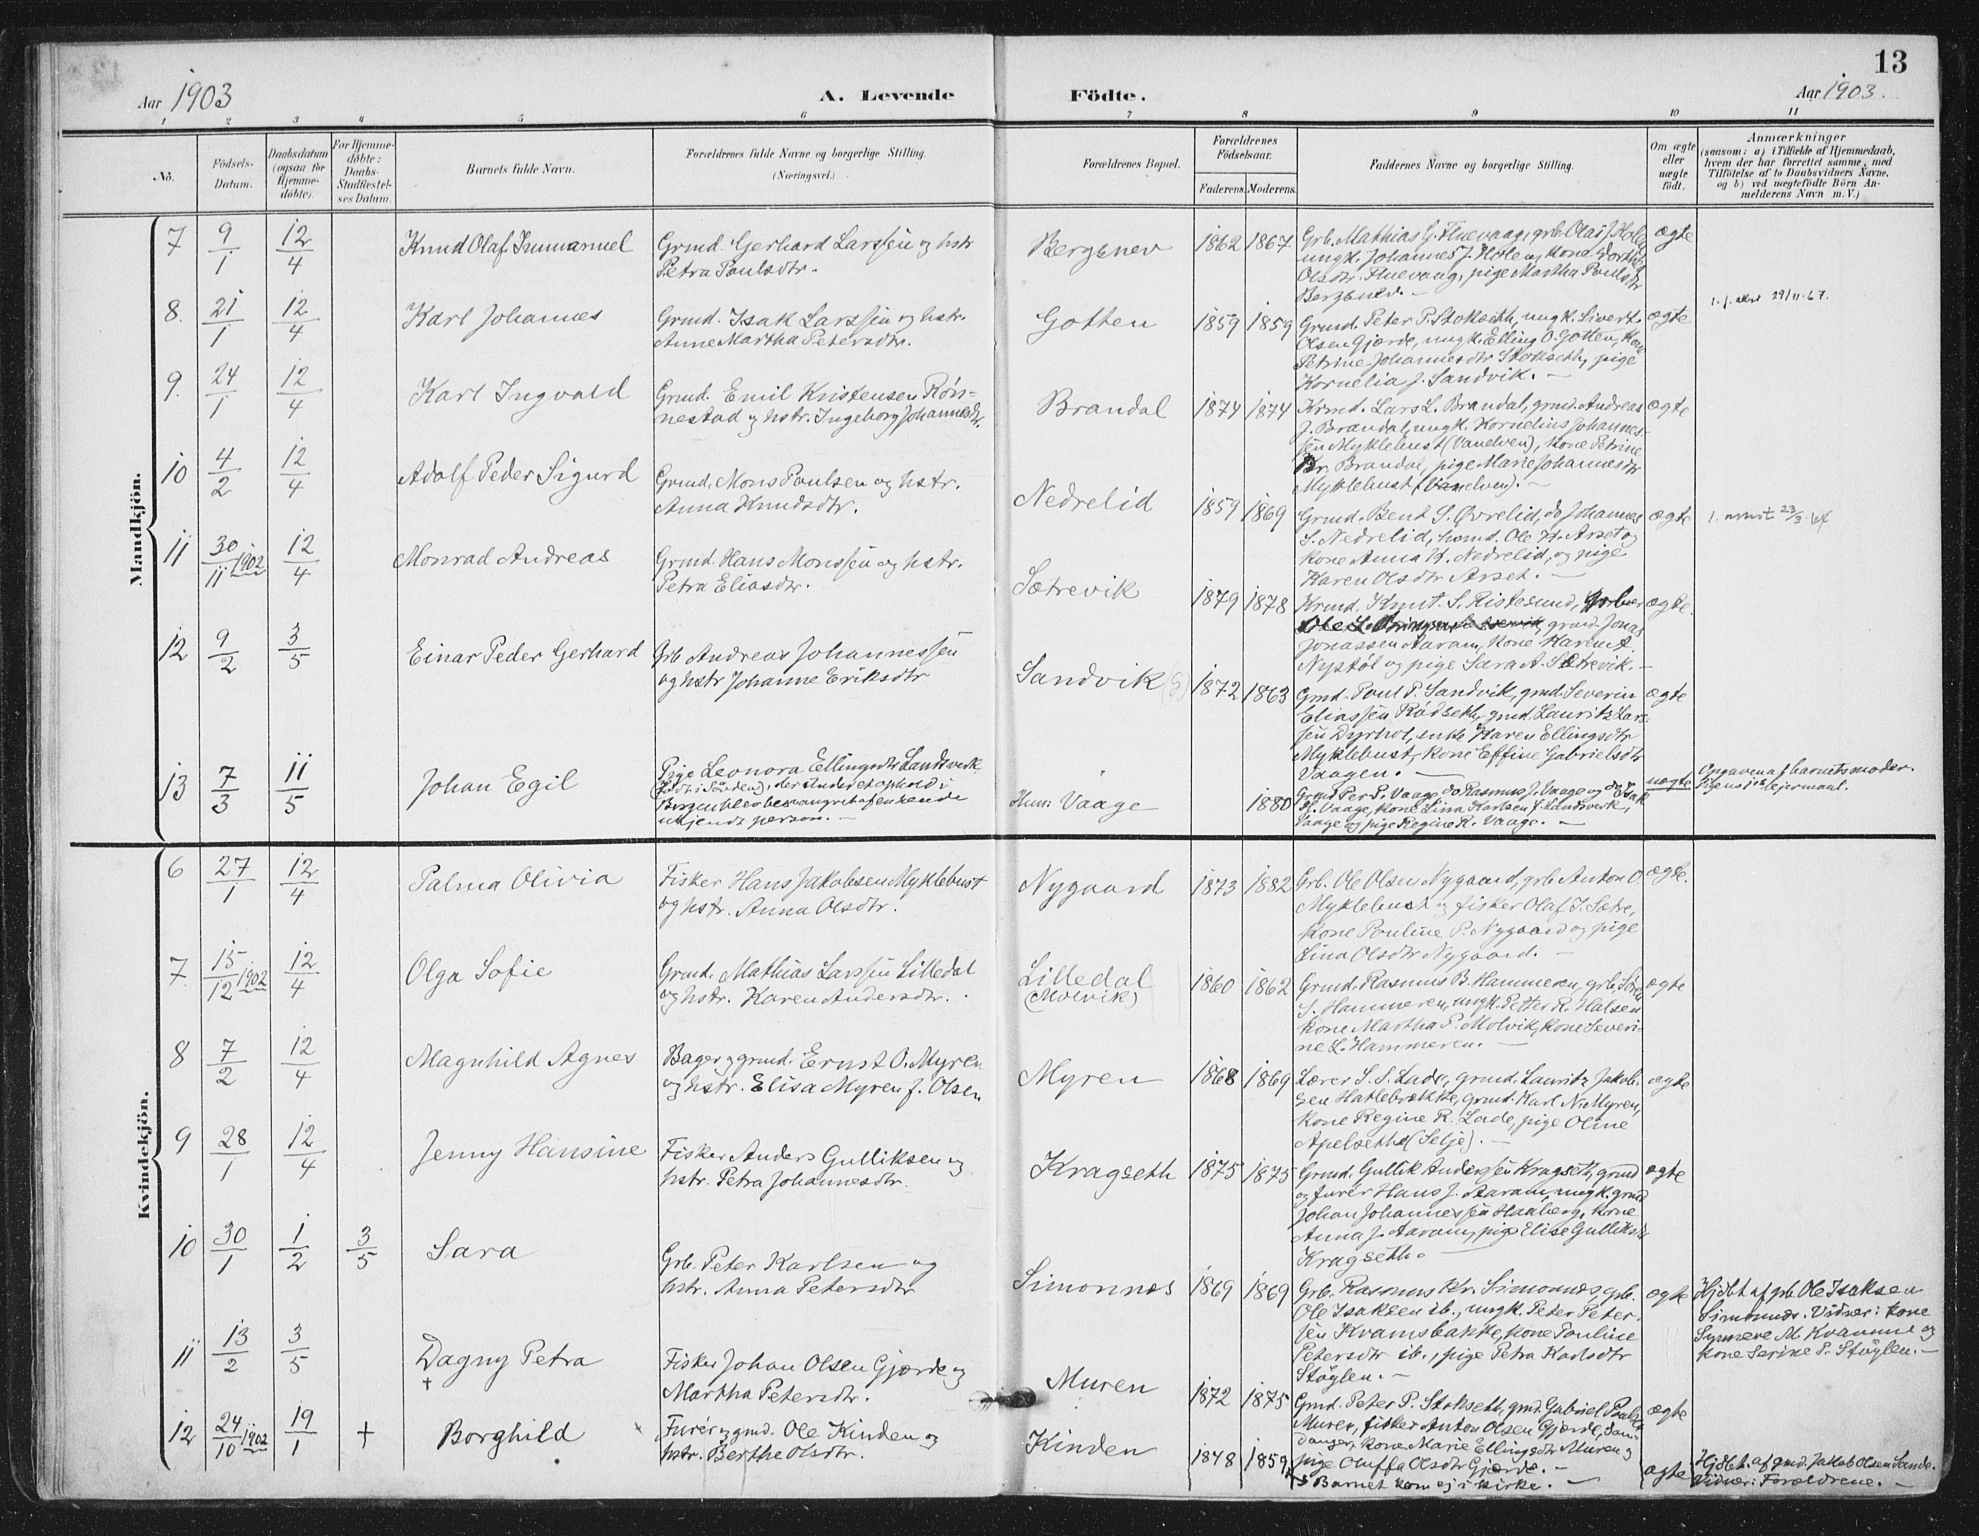 13
Aar 1903
A. Levende
Födte.
Aar 1903.
1 2 3 4 5 6 7 8 9 10 11
No.
Födsels-
Datum.
Daabsdatum
(ogsaa for
Hjemme-
døbte).
For Hjemme-
døbte:
Daabs-
Stadfæstel-
ses Datum.
Barnets fulde Navn.
Forældrenes fulde Navne og borgerlige Stilling.
(Næringsvei.)
Forældrenes Bopæl.
Forældrenes
Födselsaar.
Faderens. Moderens.
Faddernes Navne og borgerlige Stilling.
Om ægte
eller
uægte
födt.
Anmærkninger
(saasom: a) i Tilfælde af Hjemmedaab,
hvem der har forrettet samme, med
Tilföielse af to Daabsvidners Navne,
og b) ved uægtefödte Börn An-
melderens Navn m. V.)
Mandkjön.
7 9/1 12/4 Knud Olaf Immanuel
Grmd. Gerhard Larssen og hstr
Petra Poulsdtr.
Bergsnev 1862 1867
Grb. Mathias G. Fluevaag, grb. Olai J. Hole
ungk. Johannes J. Hole og kone Dorthe
Olsdtr. Fluevaag, pige Martha Poulsdtr
Bergsnev. —
ægte
8. 21/1 12/4 Karl Johannes
Grmd. Isak Larssen og hstr.
Anne Martha Petersdtr.
Gotten 1859 1859
Grmd. Peter P. Stokseth, ungk. Sivert
Olsen Gjærde, ungk. Elling O. Gotten, kone
Petrine Johannesdtr Stokseth, pige
Kornelia J. Sandvik. —
ægte
29/11-67.
9. 24/1 12/4 Karl Ingvald
Grmd. Emil Kristensen Røn-
nestad og hstr. Ingeborg Johannesdtr.
Brandal 1874 1874
Krmd. Lars L. Brandal, grmd. Andreas
J. Brandal, ungk. Kornelius Johannes-
sen Myklebust (Vanelven), kone Petrine
Kr. Brandal, pige Marie Johannesdtr
Myklebust (Vanelven). —
ægte
10 4/2 12/4 Adolf Peder Sigurd
Grmd. Mons Poulsen og hstr.
Anna Knudsdtr.
Nedrelid 1859 1869
Grmd. Bent S. Øvrelid, do Johannes
S. Nedrelid, hsmd. Ole H. Arset og
kone Anna H. Nedrelid, og pige
Karen Olsdtr Arset. —
ægte
11 30/11 1902 12/4 Monrad Andreas
Grmd. Hans Monssen og hstr.
Petra Eliasdtr.
Sætrevik 1879 1878
Krmd. Knut S. Ristesund,
grmd. Jonas
Jonassen Aaram, kone Karen A.
Nystøl og pige Sara A. Sætrevik. —
ægte.
12 9/2 3/5 Einar Peder Gerhard
Grb Andreas Johannessen
og hstr Johanne Eriksdtr
Sandvik (S) 1872 1863
Grmd. Poul P. Sandvik, grmd. Severin
Eliassen Rødseth, grmd. Lauritz Lars-
sen Dyrhol, enke Karen Ellingsdtr
Myklebust, kone Effine Gabrielsdtr
Vaagen. —
ægte
13 7/3 11/5 Johan Egil
Pige Leonora Ellingsdtr Landsverk
(født i Sunden), der under et ophold i
Bergen blev besvangret af en hende
ukjendt person. —
Hum: Vaage 1880
Grmd Per P. Vaage, do Rasmus J. Vaage og do Isak
J. Vaage, kone Lina Karlsen f. Landsverk,
Vaage og pige Regine R. Vaage. —
uægte
Opgaven af barnets moder.
Pigens 1ste leiermaal.
Kvindekjön.
6 27/1 12/4 Palma Olivia
Fisker Hans Jakobsen Myklebust
og hstr. Anna Olsdtr.
Nygaard 1873 1882
Grb. Ole Olsen Nygaard, grb. Anton O.
Myklebust og fisker Olaf I. Sætre,
kone Pouline P. Nygaard og pige
Lina Olsdtr Nygaard. —
ægte.
7. 15/12 1902 12/4 Olga Sofie
Grmd. Mathias Larssen Lilledal
og hstr. Karen Andersdtr.
Lilledal
(Molvik)
1860 1862
Grmd. Rasmus B. Hammeren, grb. Søren
S. Hammeren, ungk. Petter R. Halsen
kone Martha P. Molvik, kone Severi-
ne L. Hammeren. —
ægte
8 7/2 12/4 Magnhild Agnes
Bager og grmd. Ernst O. Myren
og hstr. Elisa Myren f. Olsen
Myren 1868 1869
Lærer S. S. Lade, grmd. Lauritz Jakob-
sen Hatlebrække, grmd. Karl N. Myren,
kone Regine R. Lade, pige Oline
Apelseth (Selje). —
ægte
9 28/1 12/4 Jenny Hansine
Fisker Anders Gulliksen og
hstr. Petra Johannesdtr.
Kragseth 1875 1875
Grmd. Gullik Anderssen Kragseth, grmd
og furér Hans J. Aaram, ungk. grmd
Johan Johannessen Haaberg, kone
Anna J. Aaram, pige Elise Gulliksdtr
Kragseth.
ægte
10 30/1 1/2 3/5 Sara
Grb. Peter Karlsen og
hstr. Anna Petersdtr
Simonnæs 1869 1869
Grb. Rasmus Kr. Simonnæs, grb.
Ole Isaksen ib., ungk. Peter Peter-
sen Kvamsbakke, kone Pouline
Petersdtr ib., pige Petra Karlsdtr
Støylen. —
ægte
Hjdbt. af grb. Ole Isaksen
Simonnæs. Vidner: kone
Synneve M. Kvamme og
kone Serine P. Støylen. —
11 13/2 3/5 Dagny Petra
+
Fisker Johan Olsen Gjærde og
Martha Petersdtr.
Muren 1872 1875
Grmd. Peter P. Stokseth, grmd. Gabriel Pouls.
Muren, fisker Anton Olsen Gjærde, San-
danger, kone Marie Ellingsdtr Muren og
pige Oluffa Olsdtr Gjærde. —
ægte
12 24/10 1902 19/1 + Borghild
Furér og grmd. Ole Kinden og
hstr. Berthe Olsdtr.
Kinden 1848 1859
Barnet kom ej i kirke. —
ægte
Hjdbt. af grmd. Jakob Olsen Sande.
Vidner: Forældrene. —